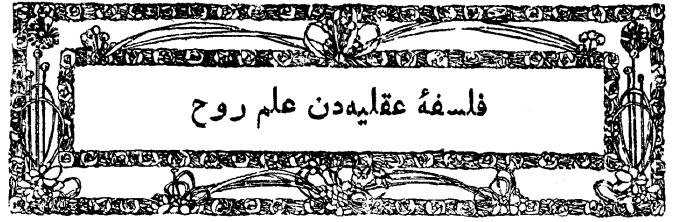 فلسفهٔ عقلیه‌دن علم روح